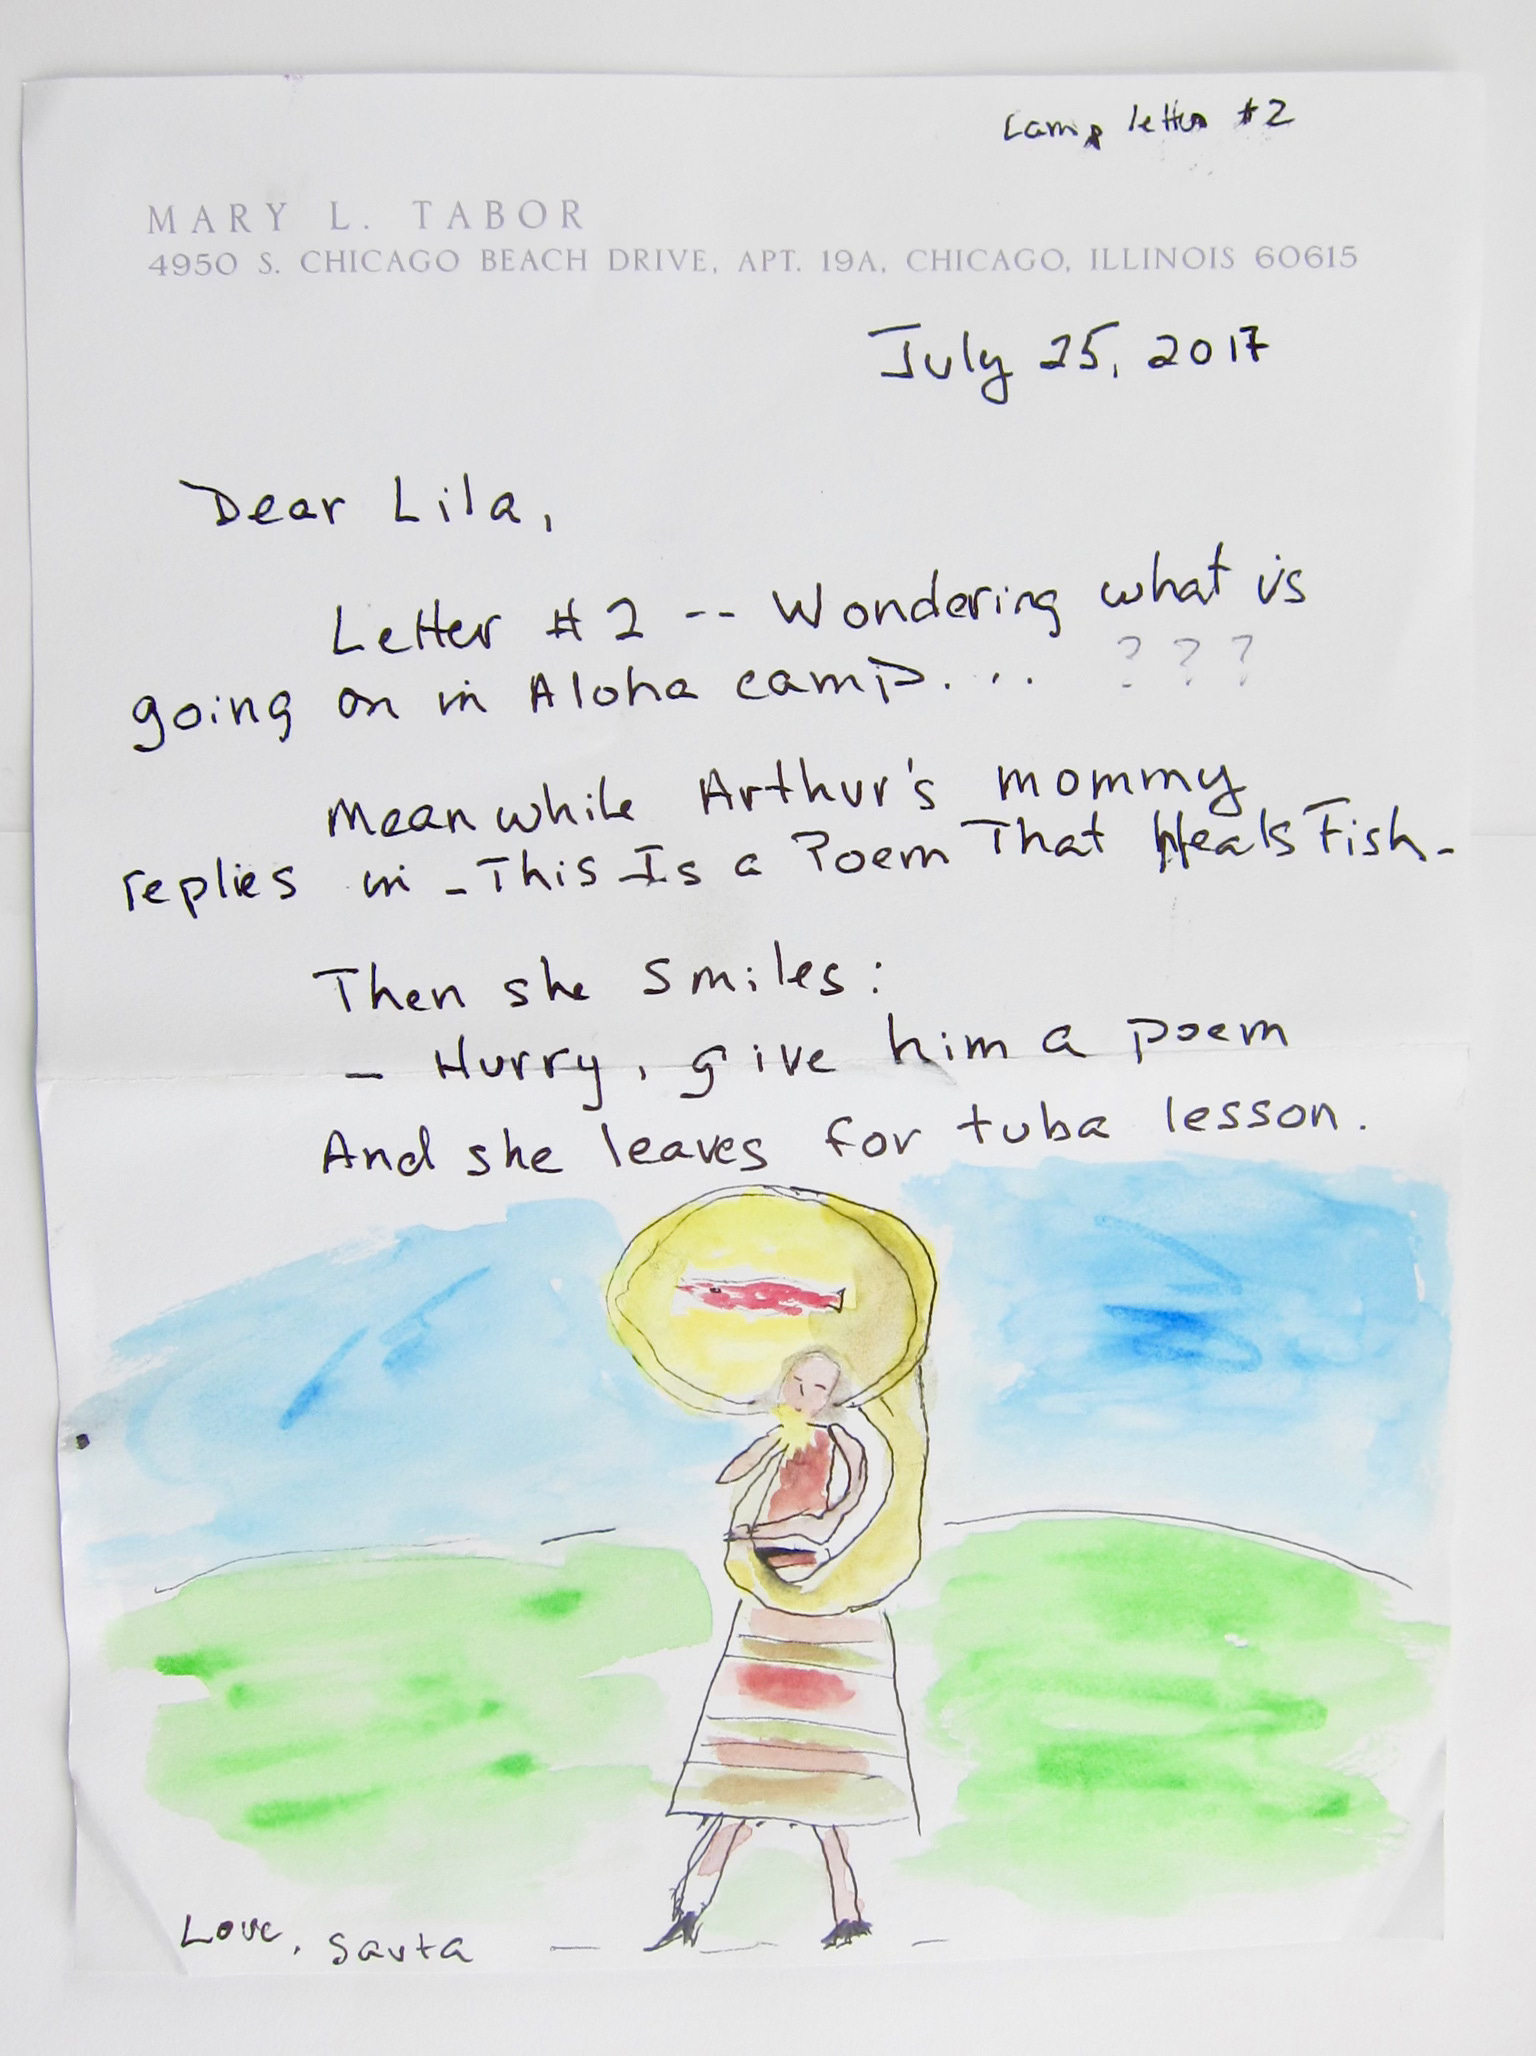 Camp letter #2
MARY L. TABOR
4950 S. CHICAGO BEACH DRIVE, APT. 19A, CHICAGO, ILLINOIS 60615
July 25, 2017
Dear Lila,
Letter #2 -- Wondering what is
going on in Aloha camp... ? ? ?
Meanwhile Arthur's mommy
replies in _This Is a Poem That Heals Fish_
Then she smiles:
— Hurry, give him a poem
And she leaves for tuba lesson.
Love, Savta